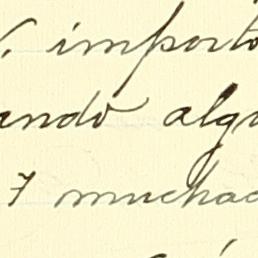 importo
ando algu
7 muchac